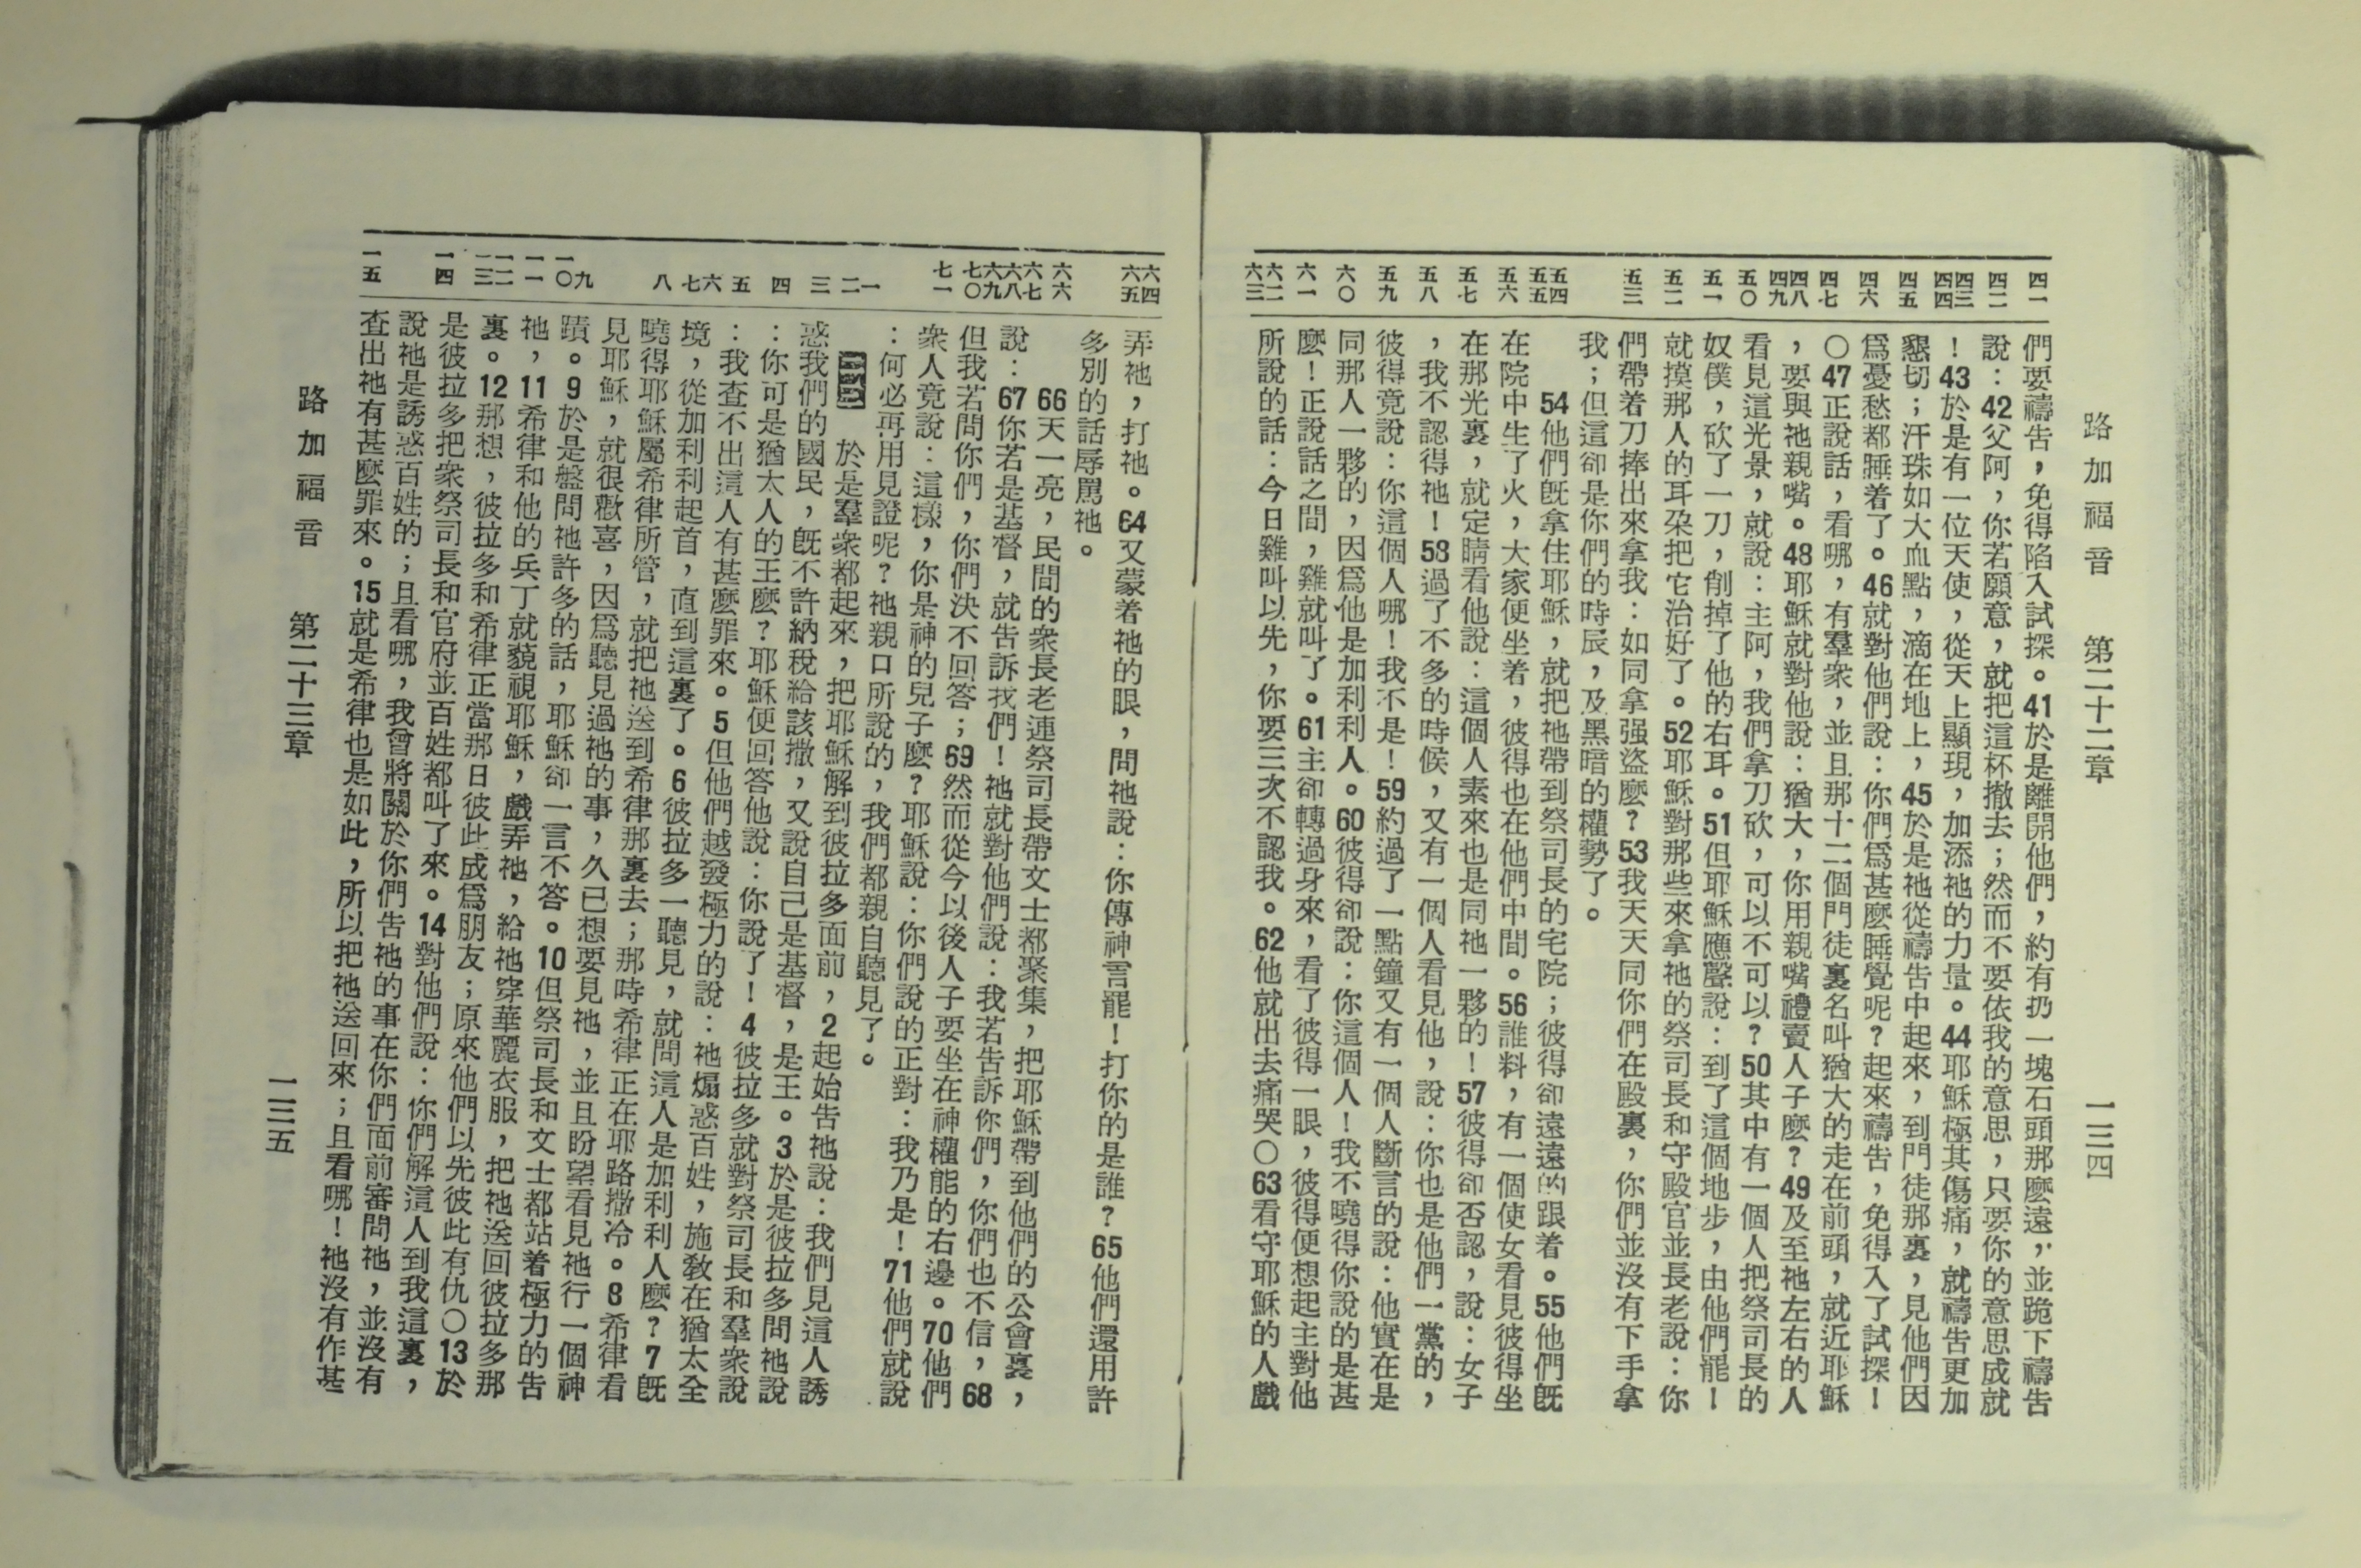 路加福音 第二十二章 一三四
四一 四二 四三 四四 四五 四六 四七 四八 四九 五〇 五一 五二 五三 五四 五五 五六 五七 五八 五九 六〇 六一 六二 六三
們要禱告，免得陷入試探。41於是離開他們，約有扔一塊石頭那麼遠，並跪下禱告
說：42父阿，你若願意，就把這杯撤去；然而不要依我的意思，只要你的意思成就
！43於是有一位天使，從天上顯現，加添祂的力量。44耶穌極其傷痛，就禱告更加
懇切；汗珠如大血點，滴在地上，45於是祂從禱告中起來，到門徒那裏，見他們因
爲憂愁都睡着了。46就對他們說：你們爲甚麼睡覺呢？起來禱告，免得入了試探！
〇47正說話，看哪，有羣衆，並且那十二個門徒裏名叫猶大的走在前頭，就近耶穌
，要與祂親嘴。48耶穌就對他說：猶大，你用親嘴禮賣人子麼？49及至祂左右的人
看見這光景，就說：主阿，我們拿刀砍，可以不可以？50其中有一個人把祭司長的
奴僕，砍了一刀，削掉了他的右耳。51但耶穌應聲說：到了這個地步，由他們罷！
就摸那人的耳朶把它治好了。52耶穌對那些來拿祂的祭司長和守殿官並長老說：你
們帶着刀捧出來拿我：如同拿强盜麼？53我天天同你們在殿裏，你們並沒有下手拿
我；但這卻是你們的時辰，及黑暗的權勢了。
54他們旣拿住耶穌，就把祂帶到祭司長的宅院；彼得卻遠遠的跟着。55他們旣
在院中生了火，大家便坐着，彼得也在他們中間。56誰料，有一個使女看見彼得坐
在那光裏，就定睛看他說：這個人素來也是同祂一夥的！57彼得卻否認，說：女子
，我不認得祂！58過了不多的時候，又有一個人看見他，說：你也是他們一黨的，
彼得竟說：你這個人哪！我不是！59約過了一點鐘又有一個人斷言的說：他實在是
同那人一夥的，因爲他是加利利人。60彼得卻說：你這個人！我不曉得你說的是甚
麼！正說話之間，雞就叫了。61主卻轉過身來，看了彼得一眼，彼得便想起主對他
所說的話：今日雞叫以先，你要三次不認我。62他就出去痛哭〇63看守耶穌的人戲
六四 六五 六六 六七 六八 六九 七〇 七一 一 二 三 四 五 六 七 八 九 一〇 一一 一二 一三 一四 一五
弄祂，打祂。64又蒙着祂的眼，問祂說：你傳神言罷！打你的是誰？65他們還用許
多別的話辱罵祂。
66天一亮，民間的衆長老連祭司長帶文士都聚集，把耶穌帶到他們的公會裏，
說：67你若是基督，就告訴我們！祂就對他們說：我若告訴你們，你們也不信，68
但我若問你們，你們決不回答；69然而從今以後人子要坐在神權能的右邊。70他們
衆人竟說：這樣，你是神的兒子麼？耶穌說：你們說的正對：我乃是！71他們就說
：何必再用見證呢？祂親口所說的，我們都親自聽見了。
於是羣衆都起來，把耶穌解到彼拉多面前，2起始告祂說：我們見這人誘
惑我們的國民，旣不許納稅給該撒，又說自己是基督，是王。3於是彼拉多問祂說
：你可是猶太人的王麼？耶穌便回答他說：你說了！4彼拉多就對祭司長和羣衆說
：我查不出這人有甚麼罪來。5但他們越發極力的說：祂煽惑百姓，施敎在猶太全
境，從加利利起首，直到這裏了。6彼拉多一聽見，就問這人是加利利人麼？7旣
曉得耶穌屬希律所管，就把祂送到希律那裏去；那時希律正在耶路撒冷。8希律看
見耶穌，就很歡喜，因爲聽見過祂的事，久已想要見祂，並且盼望看見祂行一個神
蹟。9於是盤問祂許多的話，耶穌卻一言不答。10但祭司長和文士都站着極力的告
祂，11希律和他的兵丁就藐視耶穌，戲弄祂，給祂穿華麗衣服，把祂送回彼拉多那
裏。12那想，彼拉多和希律正當那日彼此成爲朋友；原來他們以先彼此有仇〇13於
是彼拉多把衆祭司長和官府並百姓都叫了來。14對他們說：你們解這人到我這裏，
說祂是誘惑百姓的；且看哪，我曾將關於你們告祂的事在你們面前審問祂，並沒有
查出祂有甚麼罪來。15就是希律也是如此，所以把祂送回來；且看哪！祂沒有作甚
路加福音 第二十三章 一三五